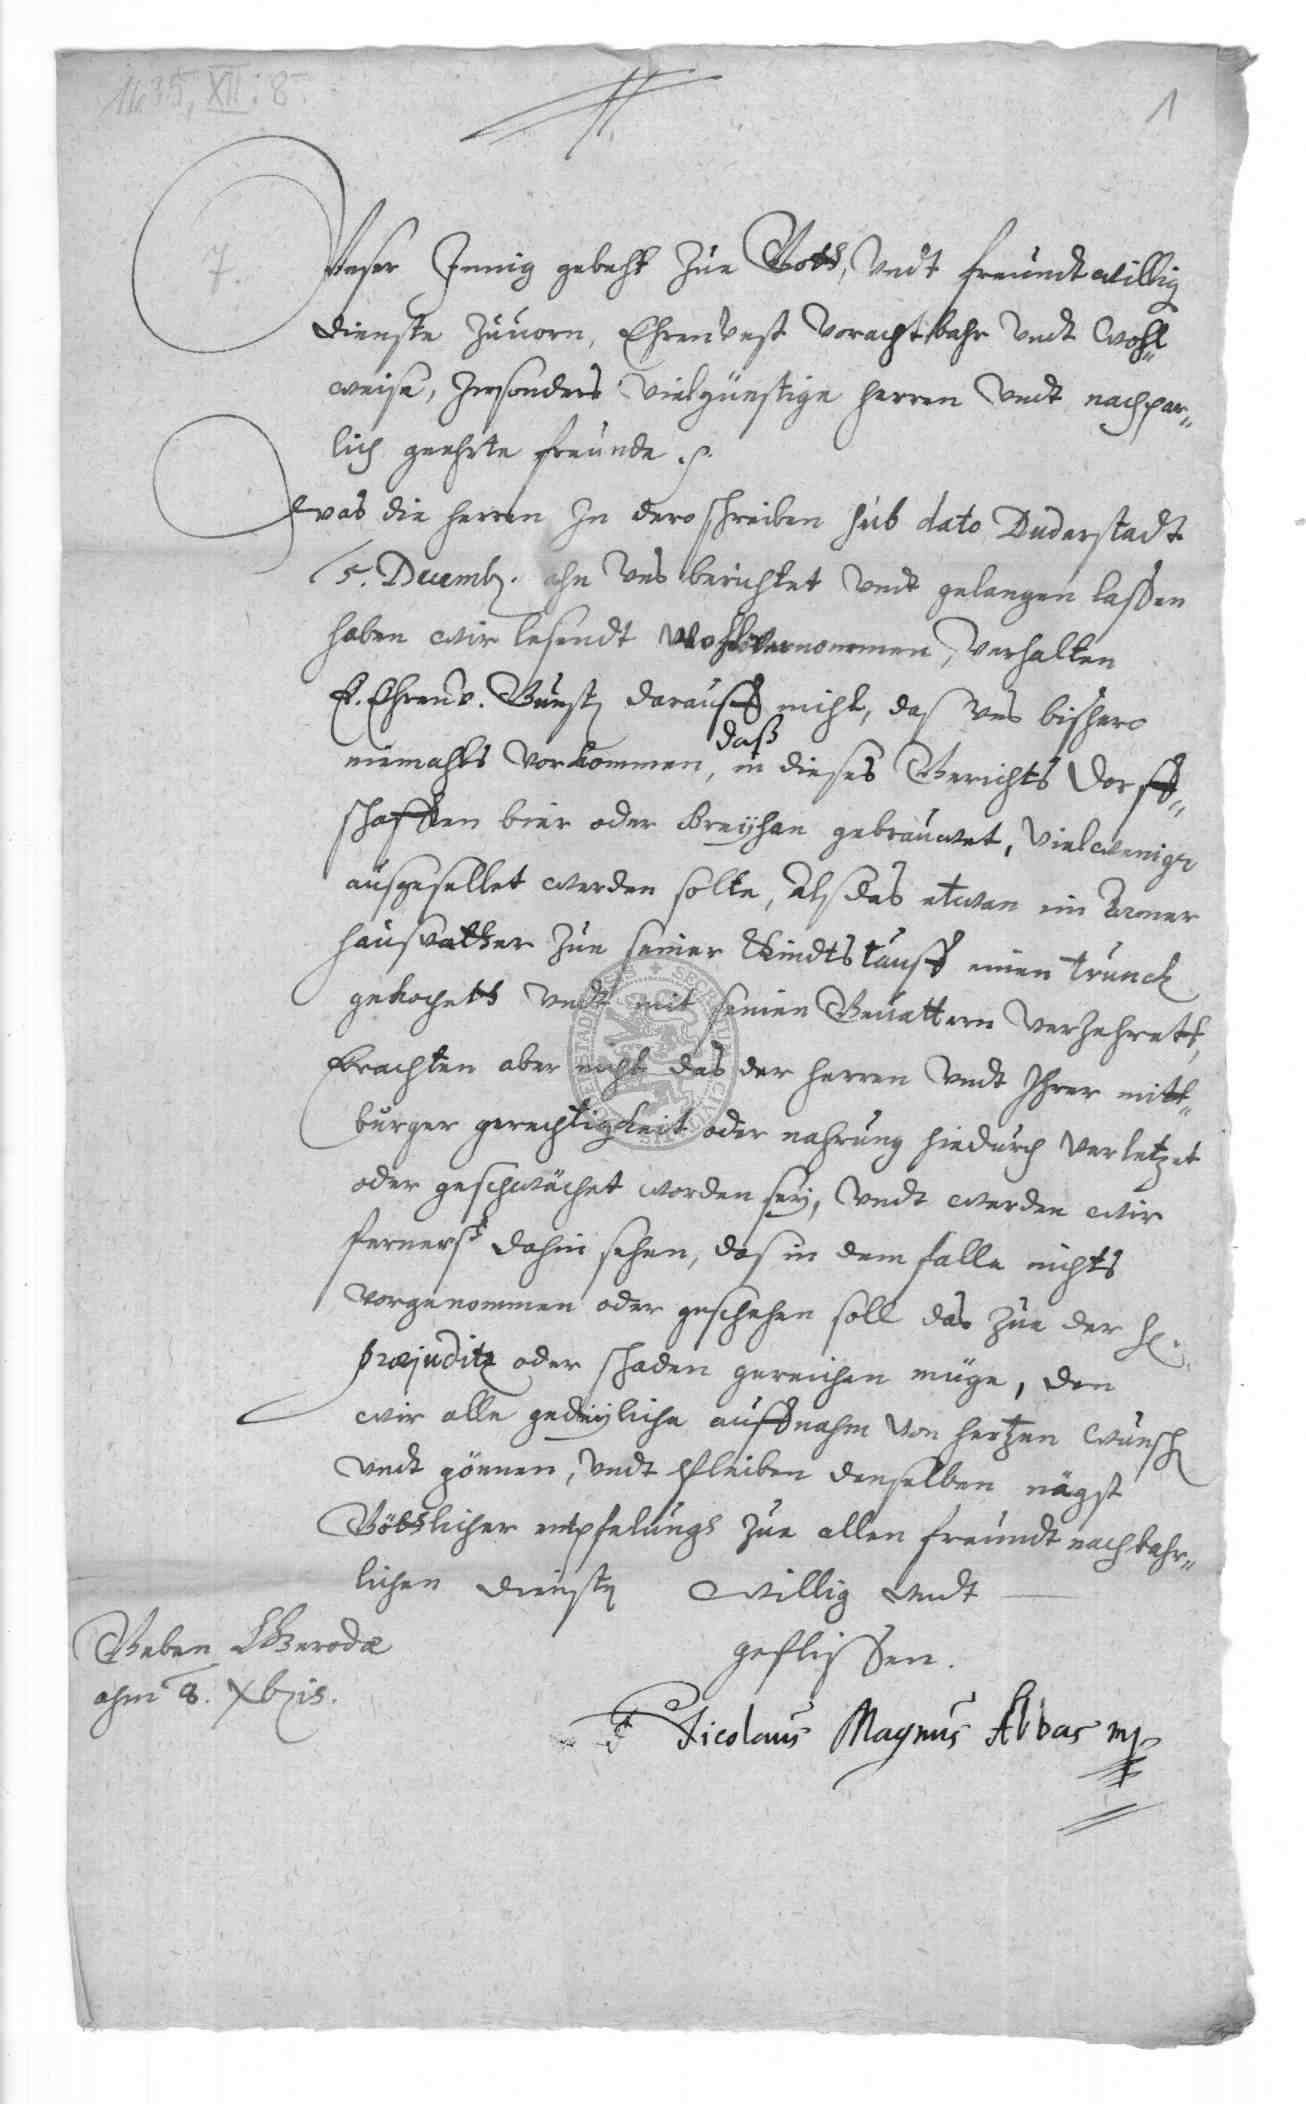 1635, XII: 8.
1
7.
Vnser Innig gebeht zue Gott, Vndt freundtwillig
dienste zuuorn, Ehrenvest vorachtbahr vndt wohl„
weise, Insonders vielgünstige herren vndt nachpar„
lich geehrte freunde.
was die herren In dero schreiben sub dato Duderstadt
5. Decemb. ahn vns berichtet vndt gelangen laßen
haben wir lesendt wohl vernommen, verhalten
E. Ehrenv. Gunst darauff nicht, das vns bishero
niemahls vorkommen, in dieses Gerichts dorff„
daß
schafften bier oder Breyhan gebrauwet, vielweniger
außgesellet werden solte, Alß das etwan ein Armer
haußvatter zue seiner Kindtstauff einen trunck
gekochett vndt mit seinen Geuattern verzehrett,
Erachten aber nicht das der herren vndt Ihrer mitt„
burger gerechtigkeit oder nahrung hiedurch verletzet
oder geschwächet worden sey, vndt werden wir
ferners dahin sehen, das in dem falle nichts
vorgenommen oder geschehen soll das zue der H.
præjuditz oder schaden gereichen müge, den
wir alle gedeyliche auffnahm von hertzen wunsch
vndt gönnen, vndt pleiben denselben nägst
Göttlicher entpfelung zue allen freundt nachbahr„
lichen dienst willig vndt
geflissen.
Geben Gerodæ
ahm 8. Xbris.
F Nicolaus Magnus Abbas mp